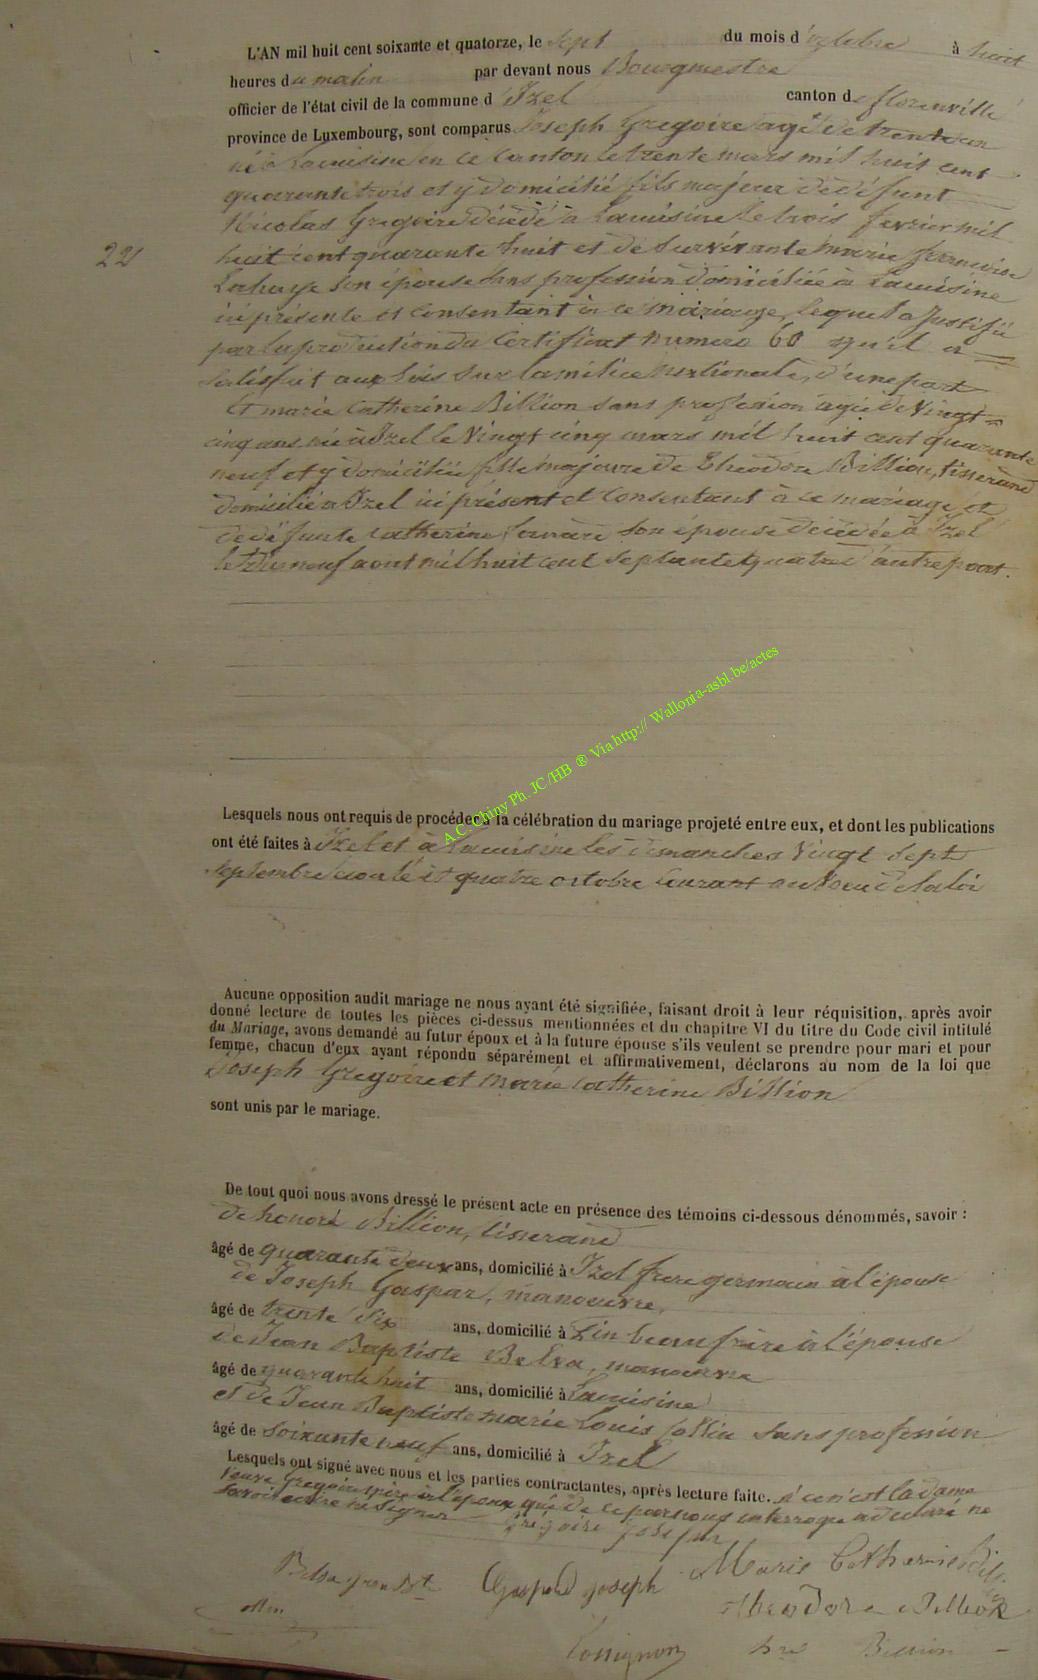 L'AN mil huit cent soixante et quatorze, le sept du mois d'octobre à huit
heures du matin par devant nous Bourgmestre
officier de l'état civil de la commune d'Izel canton de florenville
province de Luxembourg, sont comparus Joseph Gregoire agé de trente un
né à Lacuisine en ce Canton le trente mars mil huit cent
quarante trois et y domicilié fils majeur de défunt
Nicolas Gregoire décédé à Lacuisine le trois fevrier mil
22
huit cent quarante huit et de survivante marie francoise
Lahaye son épouse sans profession domiciliée à Lacuisine
ici présente et consentant à ce mariage, lequel a justifié
par la production du Certificat numero 60 qu'il a
satisfait aux lois sur la milice nationale, d'une part
Et marie catherine Billion sans profession agée de vingt
cinq ans née à Izel le vingt cinq mars mil huit cent quarante
neuf et y domiciliée fille majeure de Théodore Billion, tisserand
domicilié à Izel ici présent et consentant à ce mariage et
de défunte catherine son épouse décédée à Izel
le dix neuf aout mil huit cent septante quatre d'autre part.
Lesquels nous ont requis de procéder à la célébration du mariage projeté entre eux, et dont les publications
ont été faites à Izel et à Lacuisine les dimanches vingt sept
septembre écoulé et quatre octobre courant au voeu de la loi
A.C. Chiny Ph. JC/HB ® Via http:// Wallonia-asbl.be/actes
Aucune opposition audit mariage ne nous ayant été signifiée, faisant droit à leur réquisition, après avoir
donné lecture de toutes les pièces ci-dessus mentionnées et du chapitre VI du titre du Code civil intitulé
du Mariage, avons demandé au futur époux et à la future épouse s'ils veulent se prendre pour mari et pour
femme, chacun d'eux ayant répondu séparément et affirmativement, déclarons au nom de la loi que
Joseph Gregoire et Marie Catherine Billion
sont unis par le mariage.
De tout quoi nous avons dressé le présent acte en présence des témoins ci-dessous dénommés, savoir :
de honoré Billion, tisserand
âgé de quarante deux ans, domicilié à Izel frere germain à l'épouse
de Joseph Gaspar, manoeuvre,
âgé de trente six ans, domicilié à Pin beau frère à l'épouse
de Jean Baptiste Belva, manoeuvre
âgé de quarante huit ans, domicilié à Lacuisine
et de Jean Baptiste marie Louis Collin sans profession
âgé de soixante neuf ans, domicilié à Izel
Lesquels ont signé avec nous et les parties contractantes, après lecture faite. si ce n'est la dame
veuve Gregoire mère à l'époux qui de ce par nous interroge a declaré ne
savoir ecrire ni signer Grégoire Joseph
Belva Jean Bte Gaspard joseph Marie Catherine Bill
Theodore Billion
hre Billion